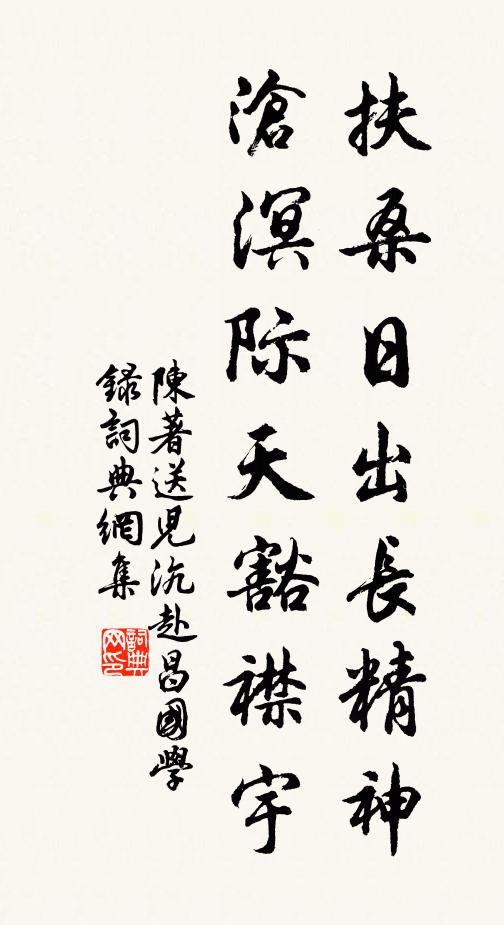 扶桑日出長精神
滄溟际天豁襟宇
陳著送児沆赴昌國學
録詞典網集
詞典网印